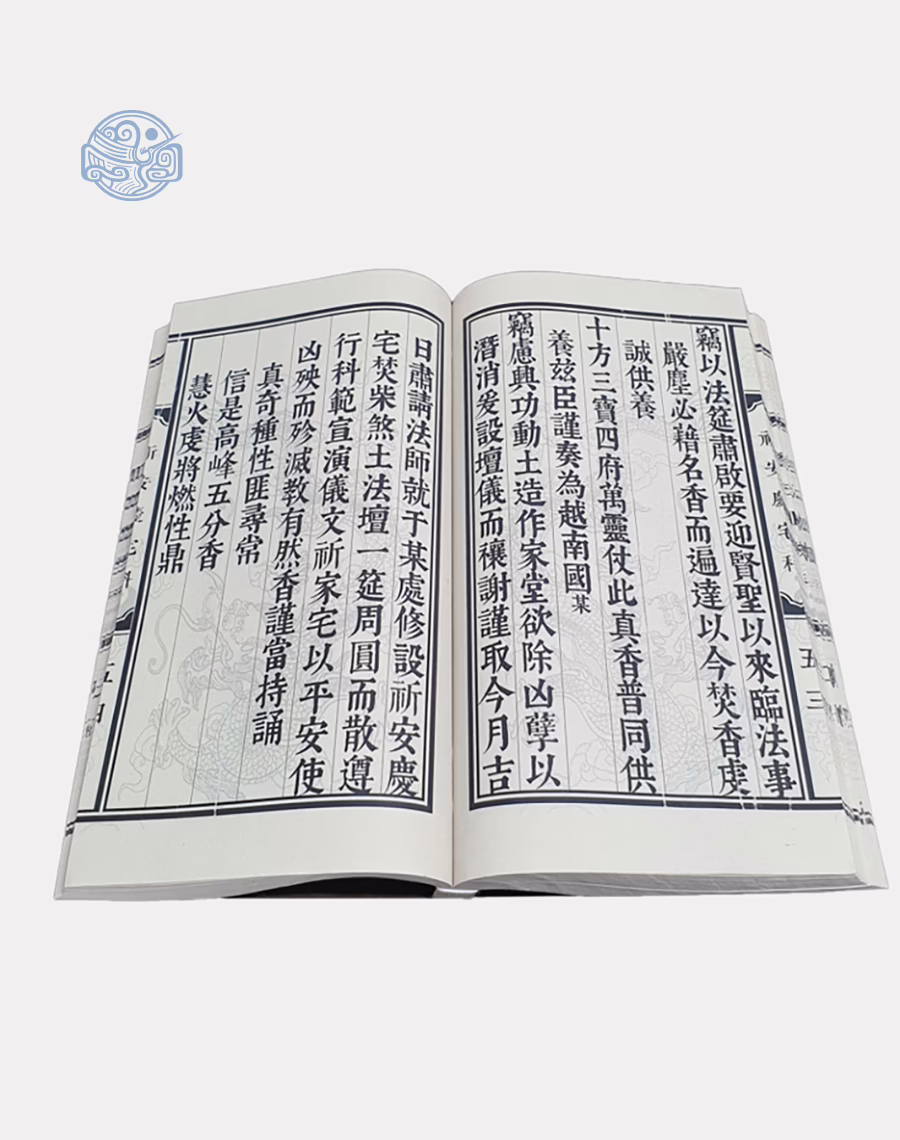 祈安慶宅科
五三
竊以法筵肅啟要迎賢聖以來臨法事
嚴塵必藉名香而遍達以今焚香虔
誠供養
十方三寶四府萬靈仗此真香普同供
養兹臣謹奏為越南國某
竊慮興功動土造作家堂欲除凶孽以
潛消爰設壇儀而禳謝謹取今月吉
日肅請法師就于某處修設祈安慶
宅焚柴煞土法壇一筵周圓而散遵
行科範宣演儀文祈家宅以平安使
凶殃而殄滅教有然香謹當持誦
真奇種性匪尋常
信是高峰五分香
慧火虔將燃性鼎